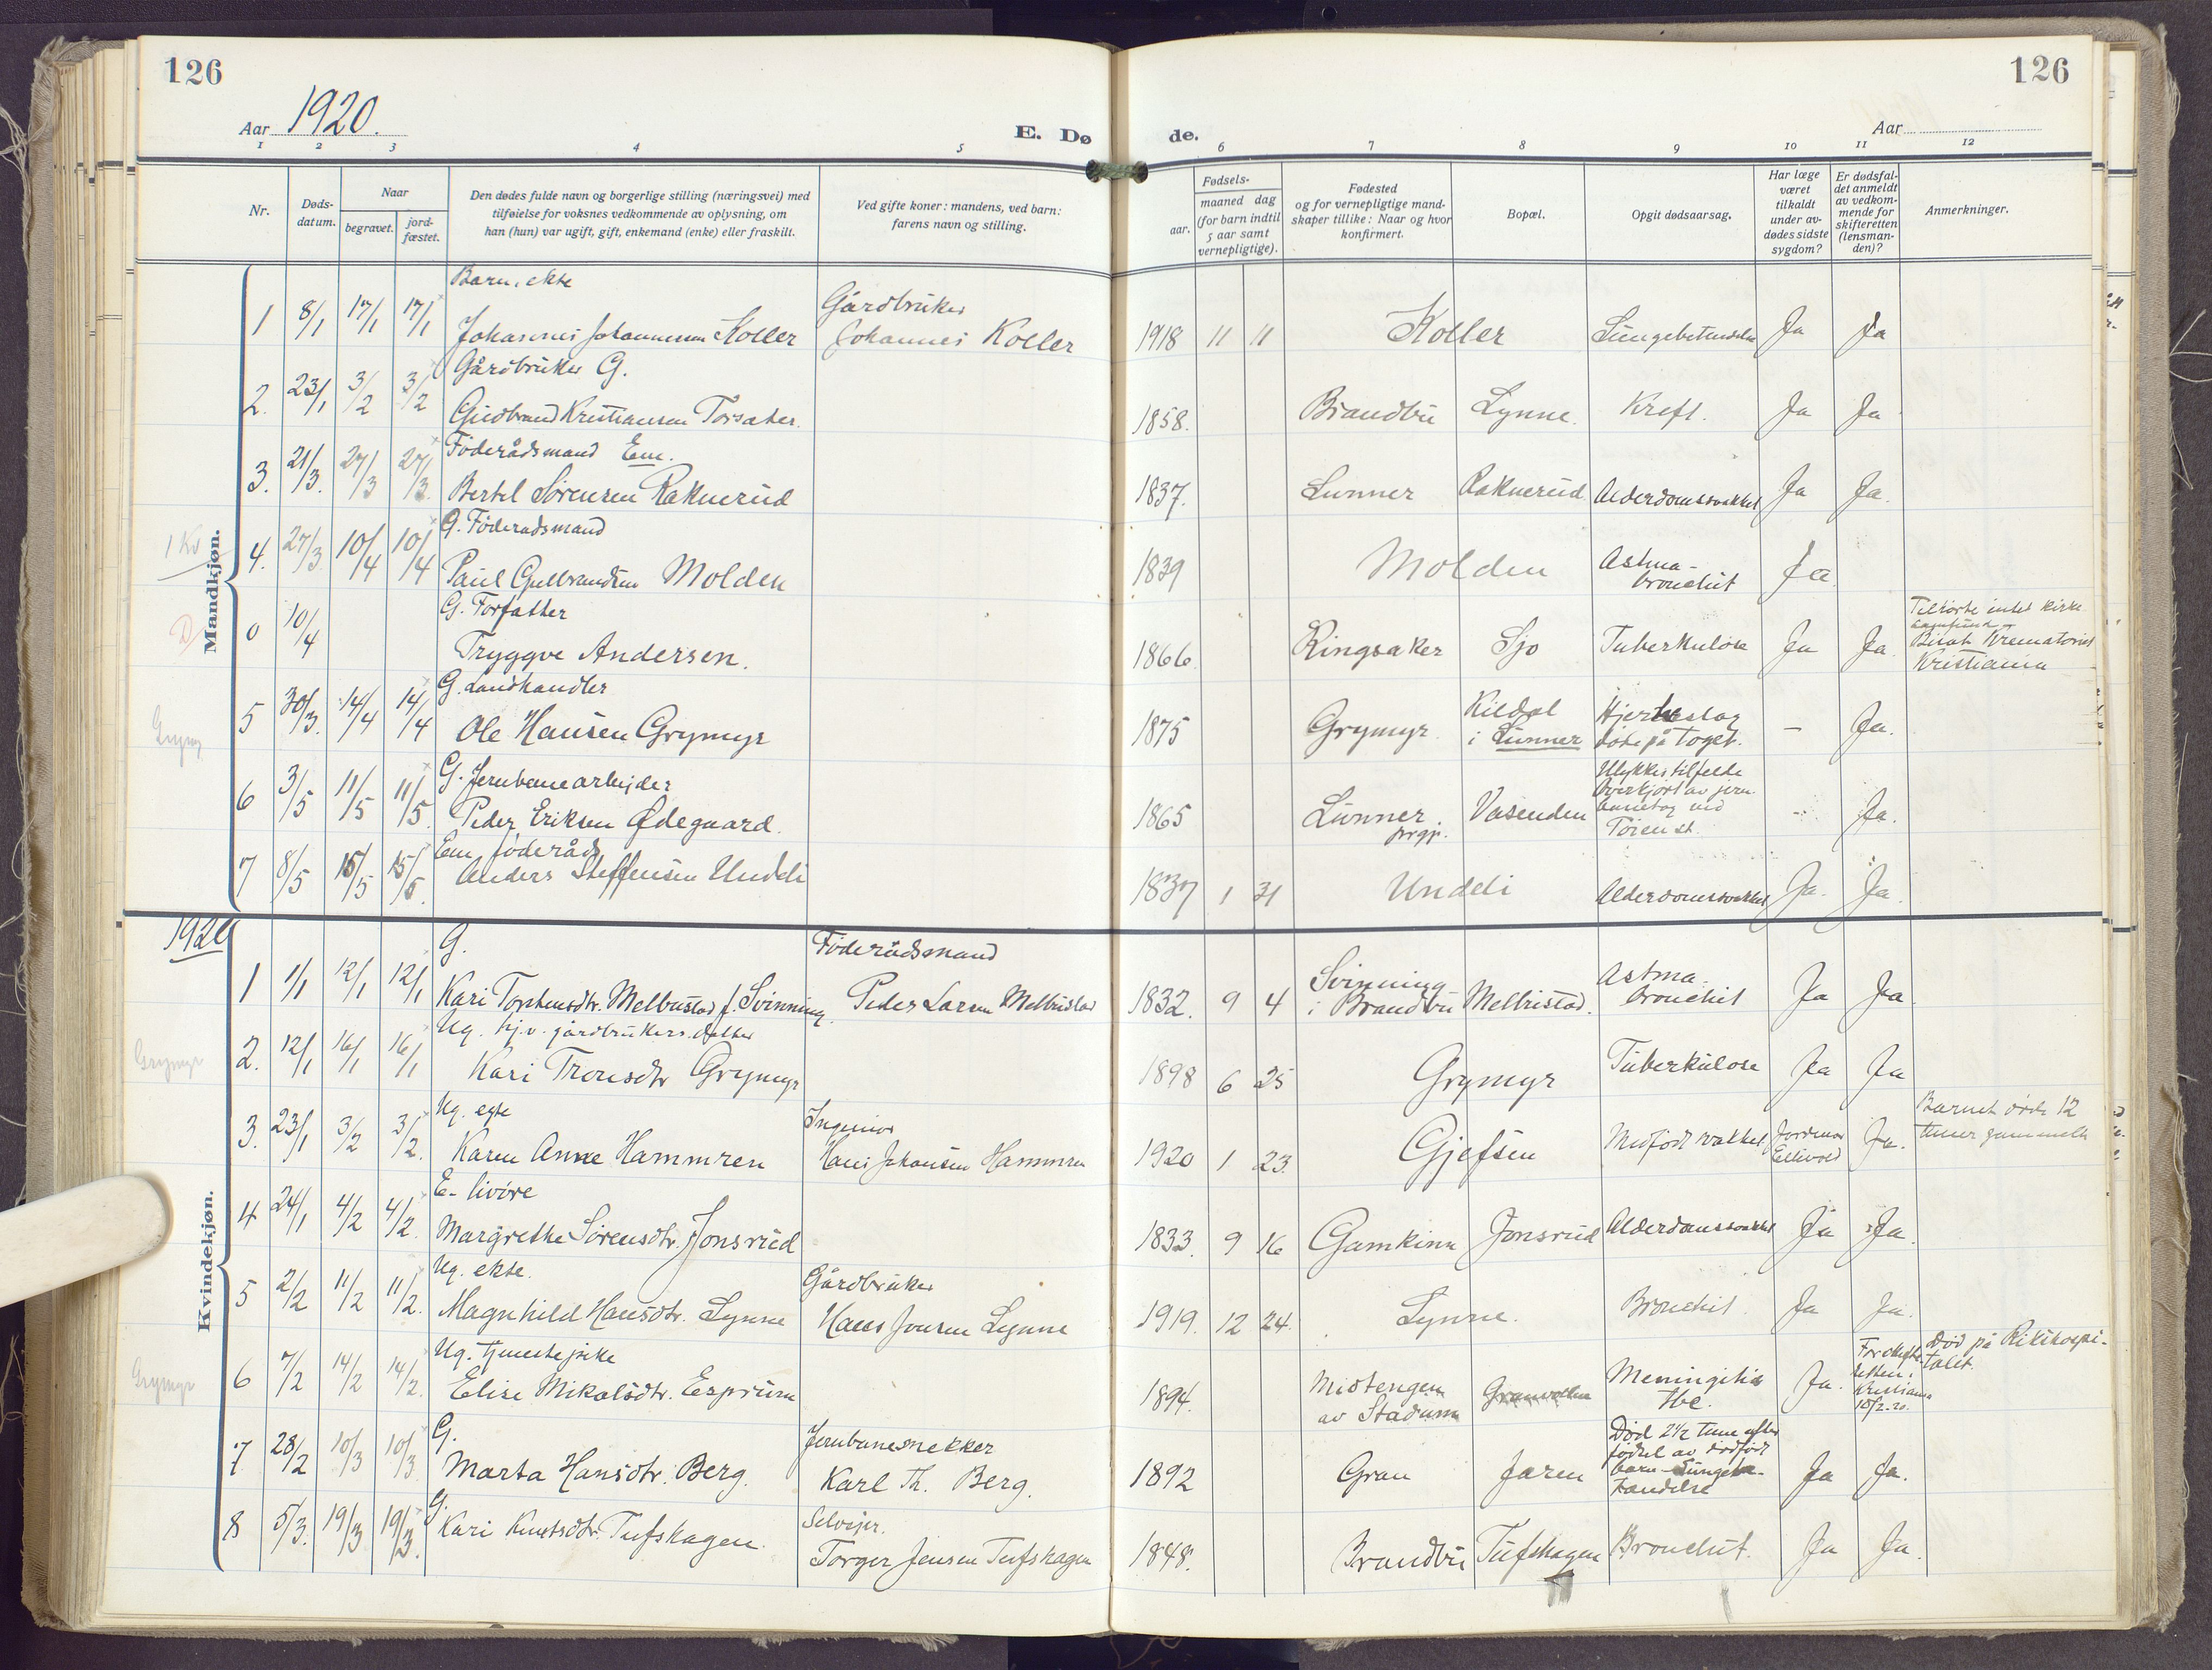 126
126
Aar 1920.
E. Dø de.
Aar
1 2 3 4 5 6 7 8 9 10 11 12
Nr.
Døds-
datum.
Naar
begravet.
jord-
fæstet.
Den dødes fulde navn og borgerlige stilling (næringsvei) med
tilføielse for voksnes vedkommende av oplysning, om
han (hun) var ugift, gift, enkemand (enke) eller fraskilt.
Ved gifte koner: mandens, ved barn:
farens navn og stilling.
Fødsels-
aar.
maaned dag
(for barn indtil
5 aar samt
vernepligtige).
Fødested
og for vernepligtige mand-
skaper tillike: Naar og hvor
konfirmert.
Bopæl.
Opgit dødsaarsag.
Har læge
været
tilkaldt
under av-
dødes sidste
sygdom?
Er dødsfal-
det anmeldt
av vedkom-
mende for
skifteretten
(lensman-
den)?
Anmerkninger.
Mandkjøn.
Barn, ekte
Gårdbruker
1 8/1 17/1 17/1 Johannes Johannessen Koller Johannes Koller 1918 11 11 Koller Lungebetendelse Ja Ja
Gårdbruker G.
2. 23/1 3/2 3/2 Gudbrand Kristiansen Torsæter. 1858. Brandbu Lynne. Kreft. Ja Ja
Føderådsmand Em.
3. 21/3. 27/3 27/3. Bertel Sørensen Raknerud 1837. Lunner Raknerud Alderdomssvakhet Ja Ja.
G. Føderadsmand
4. 27/3 10/4 10/4 Paul Gulbrandsen Molden 1839 Molden Astma-
bronchit Ja.
G. Forfatter
0 10/4 Tryggve Andersen. 1866. Ringsaker Sjo Tuberkulose Ja Ja.
Tilhørte intet kirke
samfund
Bisat Krematoriet
Kristiania
G. Landhandler
5 30/3. 14/4 14/4 Ole Hansen Grymyr 1875 Grymyr Kildal
i Lunner Hjerteslag
døde på toget. – Ja.
Grymyr
G. Jernbanearbeider
6 3/5 11/5 11/5. Peder Eriksen Ødegaard. 1865 Lunner
prgj. Vasenden Ulykkestilfelde
Overkjørt av jern
banetog ved
Tøien st. - Ja.
Em føderåds
7 8/5 15/5 15/5. Anders Steffensen Undeli 1837 1 31 Undeli Alderdomssvakhet Ja. Ja.
1920
Kvindekjøn.
G. Føderådsmand
1 1/1 12/1 12/1 Kari Torstensdtr. Melbustad f. Svinning. Peder Larsen Melbustad 1832. 9 4 Svinning
i Brandbu Melbustad. Astma-
bronchit Ja Ja.
Ug. hj.v. gårdbrukers datter
2. 12/1 16/1 16/1 Kari Tronsdtr Grymyr 1898 6 25 Grymyr Tuberkulose Ja Ja
Grymyr
Ug. egte Ingeniør
3. 23/1 3/2 3/2. Karen Anne Hammren Hans Johansen Hammren 1920 1 23. Gjefsen Medfødt svakhet Jordmor
Ellivold Ja.
Barnet døde 12
timer gammelt
E- livøre
4 24/1 4/2 4/2. Margrethe Sørensdtr. Jonsrud 1833. 9 16 Gamkinn Jonsrud Alderdomssvakhet Ja Ja.
Ug. ekte. Gårdbruker
5 2/2 11/2 11/2. Magnhild Hansdtr. Lynne Hans Jonsen Lynne 1919. 12 24. Lynne. Bronchit. Ja Ja.
Ug. tjenestepike
6 7/2 14/2 14/2. Elise Mikalsdtr. Esprum 1894. Midtengen
av Stadum Granvollen Meningitis
tbc. Ja.
Kristiania
10/2-20.
Død på Rikshospi-
talet.
Grymyr
G. Jernbanesnekker
7 28/2 10/3 10/3. Marta Hansdtr. Berg. Karl Th. Berg. 1892 Gran Jaren Død 2½ time efter
fødsel av dødfødt
barn - Lungebe-
tændelse Ja Ja.
G. Selveier.
8 5/3. 19/3 19/3. Kari Knutsdtr. Tufskagen. Torger Jensen Tufskagen 1848. Brandbu Tufskagen Bronchit. Ja Ja.